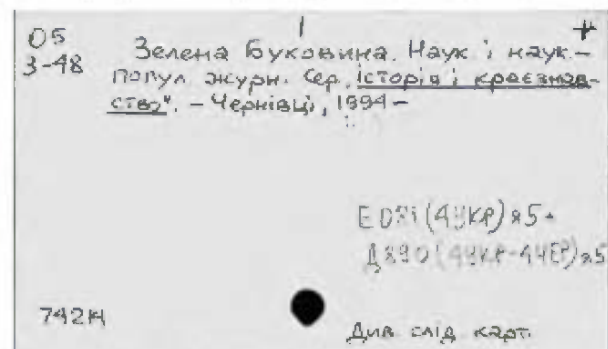 05
З-48
Зелена Буковина. Наук. і наук.-
попул. журн. Сер. „Історія і краєзнав-
ство". – Чернівці, 1994 –
Е081(4УКР)я5+
Д890(4УКР-4ЧЕР)я5
742Н
Див. слід. карт.